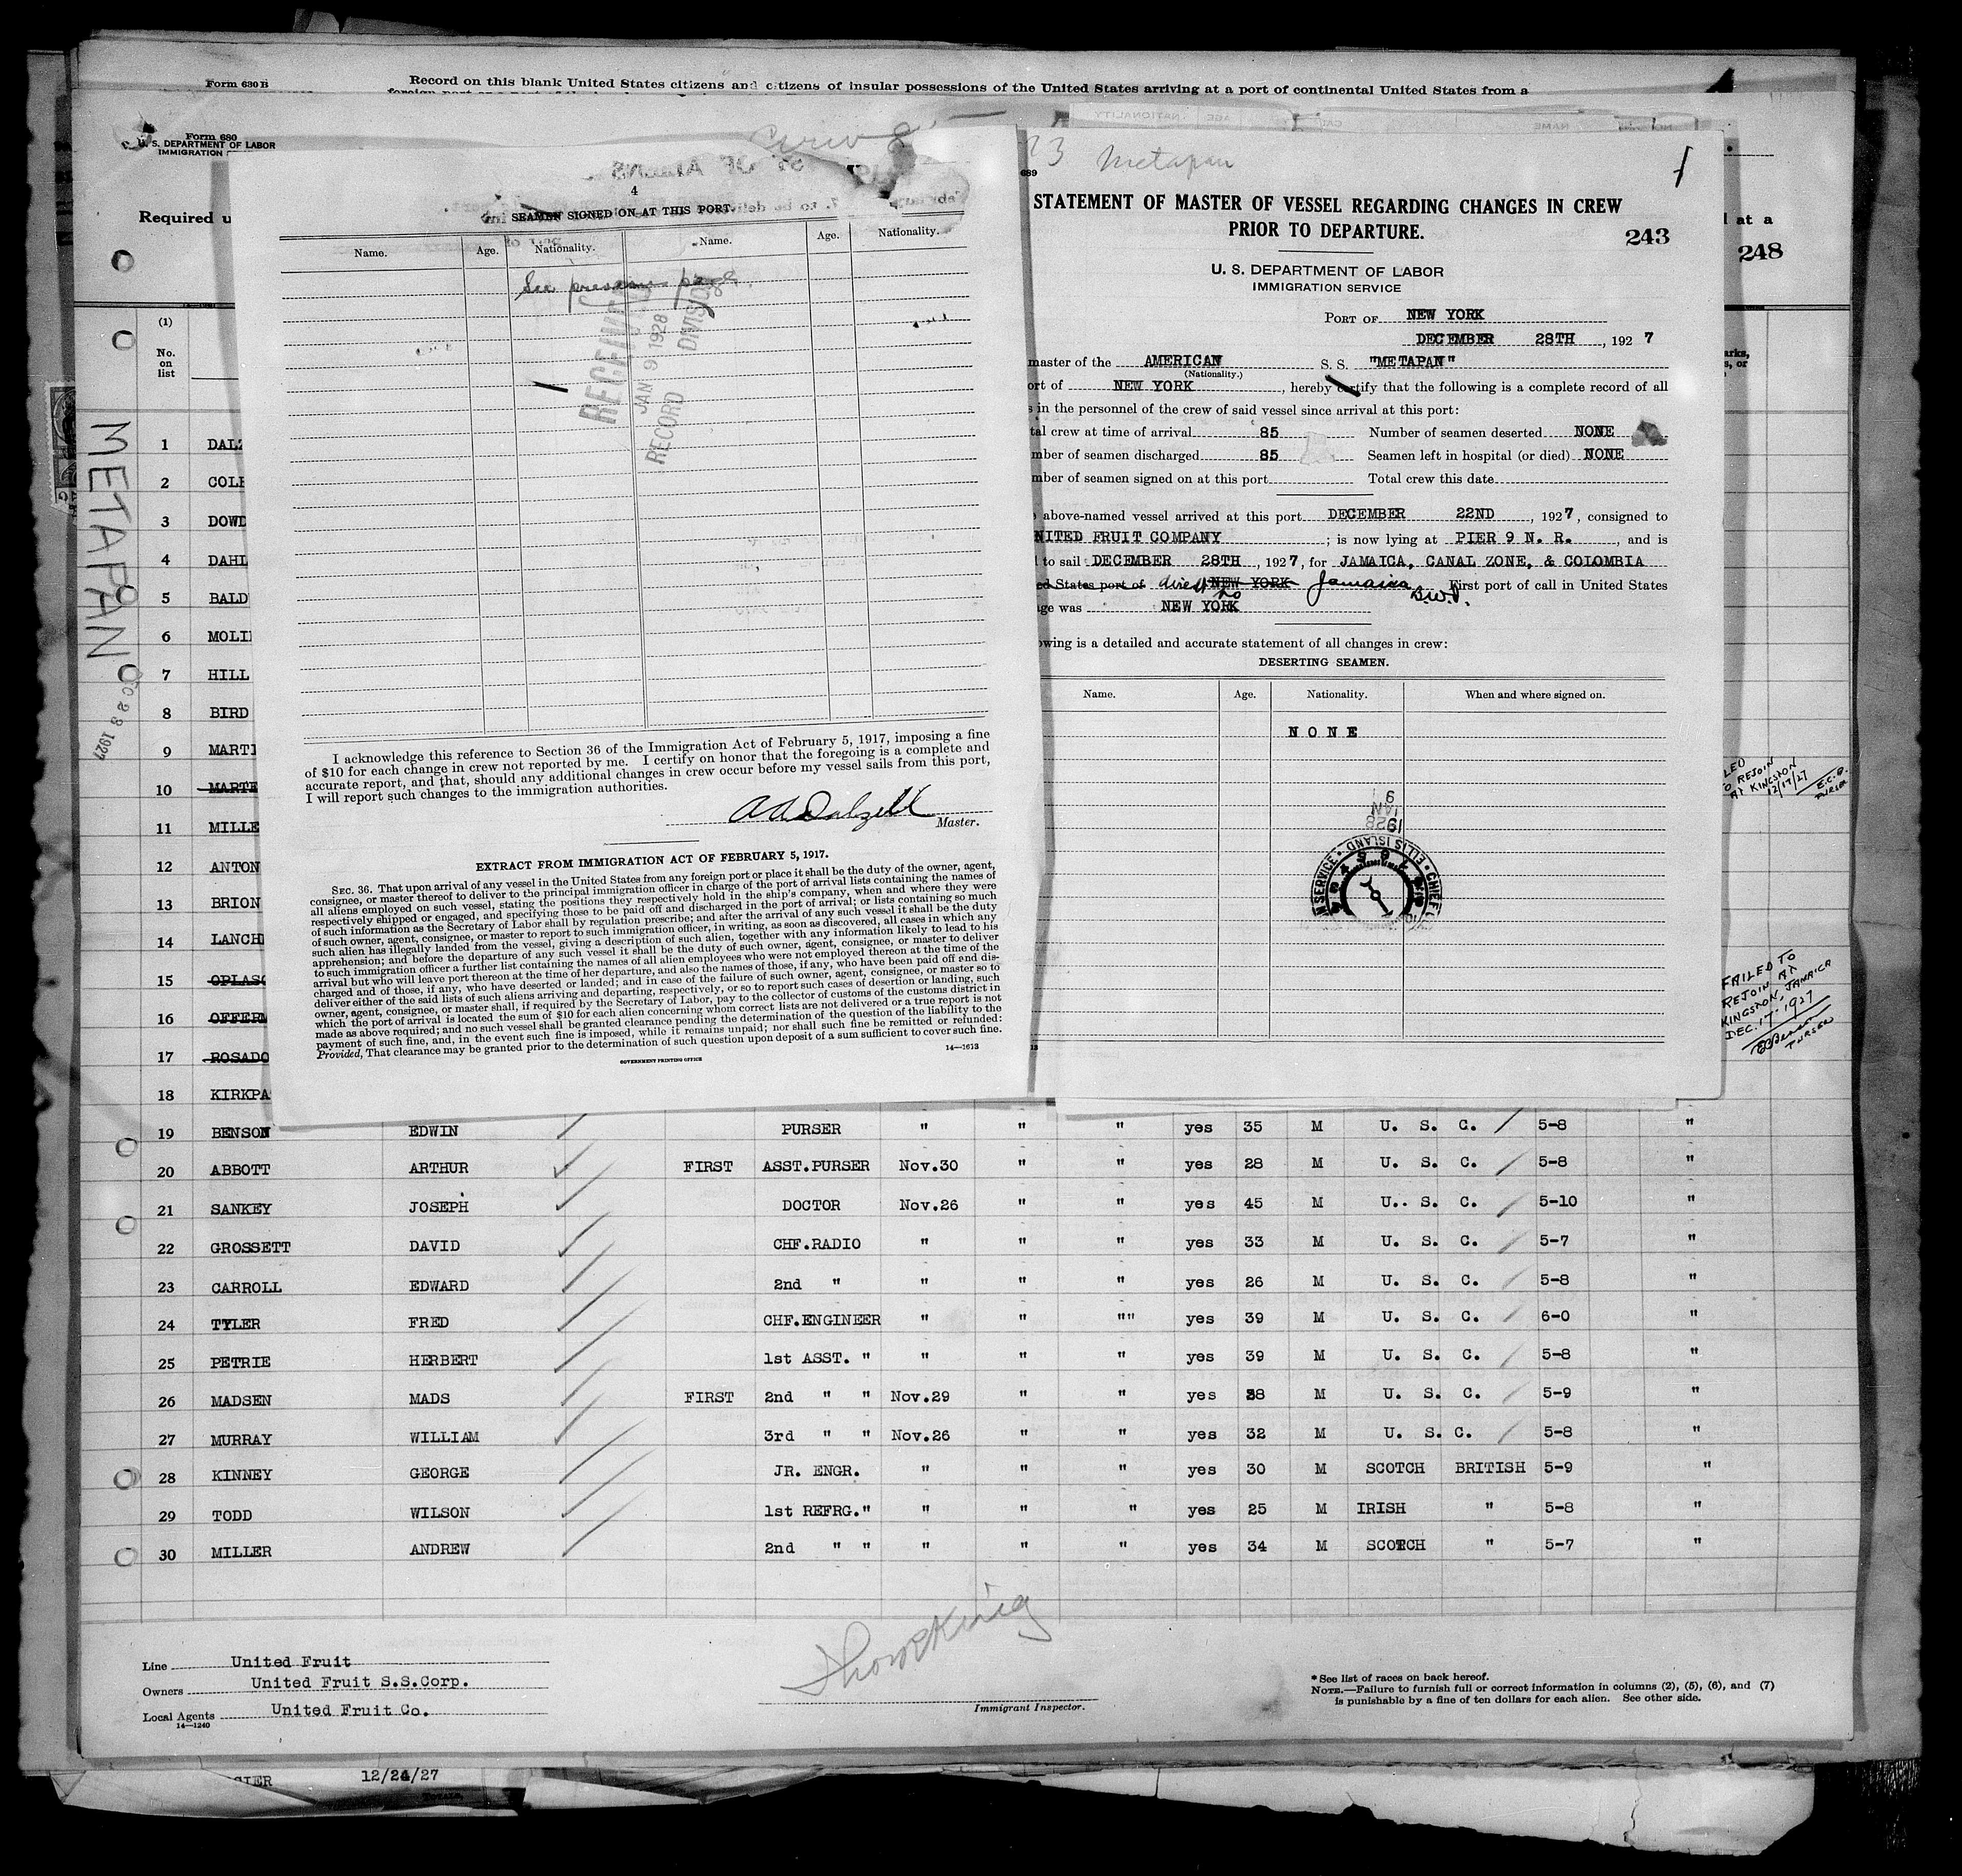 Form 630 B
Record on this blank United States citizens and citizens of insular possessions of the United States arriving at a port of continental United States from a
Form 680
U. S. DEPARTMENT OF LABOR
IMMIGRATION
Required u
d at a
248
(1)
No.
on
list
METAPAN
1 DALZ
2 COLE
3 DOWD
4 DAHL
5 BALD
6 MOLI
7 HILL
8 BIRD
9 MARTI
10 MARTE
11 MILLE
12 ANTON
13 BRION
14 LANCH
15 OPLASC
16 OFFERM
17 ROSADO
18 KIRKPA
4
SEAMEN SIGNED ON AT THIS PORT.
Name. Age. Nationality. Name. Age. Nationality.
See previous page.
RECEIVED
JAN 9 1928
RECORD DIVISION
I acknowledge this reference to Section 36 of the Immigration Act of February 5, 1917, imposing a fine
of $10 for each change in crew not reported by me. I certify on honor that the foregoing is a complete and
accurate report, and that, should any additional changes in crew occur before my vessel sails from this port,
I will report such changes to the immigration authorities.
A A Dalzell
Master.
EXTRACT FROM IMMIGRATION ACT OF FEBRUARY 5, 1917.
SEC. 36. That upon arrival of any vessel in the United States from any foreign port or place it shall be the duty of the owner, agent,
consignee, or master thereof to deliver to the principal immigration officer in charge of the port of arrival lists containing the names of
all aliens employed on such vessel, stating the positions they respectively hold in the ship's company, when and where they were
respectively shipped or engaged, and specifying those to be paid off and discharged in the port of arrival; or lists containing so much
of such information as the Secretary of Labor shall by regulation prescribe; and after the arrival of any such vessel it shall be the duty
of such owner, agent, consignee, or master to report to such immigration officer, in writing, as soon as discovered, all cases in which any
such alien has illegally landed from the vessel, giving a description of such alien, together with any information likely to lead to his
apprehension; and before the departure of any such vessel it shall be the duty of such owner, agent, consignee, or master to deliver
to such immigration officer a further list containing the names of all alien employees who were not employed thereon at the time of the
arrival but who will leave port thereon at the time of her departure, and also the names of those, if any, who have been paid off and dis-
charged and of those, if any, who have deserted or landed; and in case of the failure of such owner, agent, consignee, or master so to
deliver either of the said lists of such aliens arriving and departing, respectively, or so to report such cases of desertion or landing, such
owner, agent, consignee, or master shall, if required by the Secretary of Labor, pay to the collector of customs of the customs district in
which the port of arrival is located the sum of $10 for each alien concerning whom correct lists are not delivered or a true report is not
made as above required; and no such vessel shall be granted clearance pending the determination of the question of the liability to the
payment of such fine, and, in the event such fine is imposed, while it remains unpaid; nor shall such fine be remitted or refunded:
Provided, That clearance may be granted prior to the determination of such question upon deposit of a sum sufficient to cover such fine.
GOVERNMENT PRINTING OFFICE 14—1613
23 Metapan
689
STATEMENT OF MASTER OF VESSEL REGARDING CHANGES IN CREW
PRIOR TO DEPARTURE.
243
U. S. DEPARTMENT OF LABOR
IMMIGRATION SERVICE
PORT OF NEW YORK
DECEMBER 28TH, 1927
master of the AMERICAN S. S. "METAPAN"
(Nationality.)
ort of NEW YORK, hereby certify that the following is a complete record of all
s in the personnel of the crew of said vessel since arrival at this port:
tal crew at time of arrival 85 Number of seamen deserted NONE
mber of seamen discharged 85 Seamen left in hospital (or died) NONE
mber of seamen signed on at this port Total crew this date
above-named vessel arrived at this port DECEMBER 22ND, 1927, consigned to
NITED FRUIT COMPANY; is now lying at PIER 9 N. R., and is
to sail DECEMBER 28TH, 1927, for JAMAICA, CANAL ZONE, & COLOMBIA
ed States port of direct NEW YORK to Jamaica B.W.I. First port of call in United States
ge was NEW YORK
owing is a detailed and accurate statement of all changes in crew:
DESERTING SEAMEN.
Name. Age. Nationality. When and where signed on.
NONE
9
JAN
1928
ELLIS ISLAND
LED
O REJOIN
AT KINGSTON
12/17/27 E.C.B.
PURSER
FAILED TO
REJOIN AT
KINGSTON, JAMAICA
DEC. 17-1927
PURSER
19 BENSON EDWIN PURSER " " " yes 35 M U. S. C. 5-8 "
20 ABBOTT ARTHUR FIRST ASST.PURSER Nov.30 " " yes 28 M U. S. C. 5-8 "
21 SANKEY JOSEPH DOCTOR Nov.26 " " yes 45 M U. S. C. 5-10 "
22 GROSSETT DAVID CHF.RADIO " " " yes 33 M U. S. C. 5-7 "
23 CARROLL EDWARD 2nd " " " " yes 26 M U. S. C. 5-8 "
24 TYLER FRED CHF.ENGINEER " " "" yes 39 M U. S. C. 6-0 "
25 PETRIE HERBERT 1st ASST. " " " " yes 39 M U. S. C. 5-8 "
26 MADSEN MADS FIRST 2nd " " Nov.29 " " yes 38 M U. S. C. 5-9 "
27 MURRAY WILLIAM 3rd " " Nov.26 " " yes 32 M U. S. C. 5-8 "
28 KINNEY GEORGE JR. ENGR. " " " yes 30 M SCOTCH BRITISH 5-9 "
29 TODD WILSON 1st REFRG." " " " yes 25 M IRISH " 5-8 "
30 MILLER ANDREW 2nd " " " " " yes 34 M SCOTCH " 5-7 "
Line United Fruit
Owners United Fruit S.S.Corp.
Local Agents United Fruit Co.
14—1240
Immigrant Inspector.
*See list of races on back hereof.
NOTE.—Failure to furnish full or correct information in columns (2), (5), (6), and (7)
is punishable by a fine of ten dollars for each alien. See other side.
12/24/27